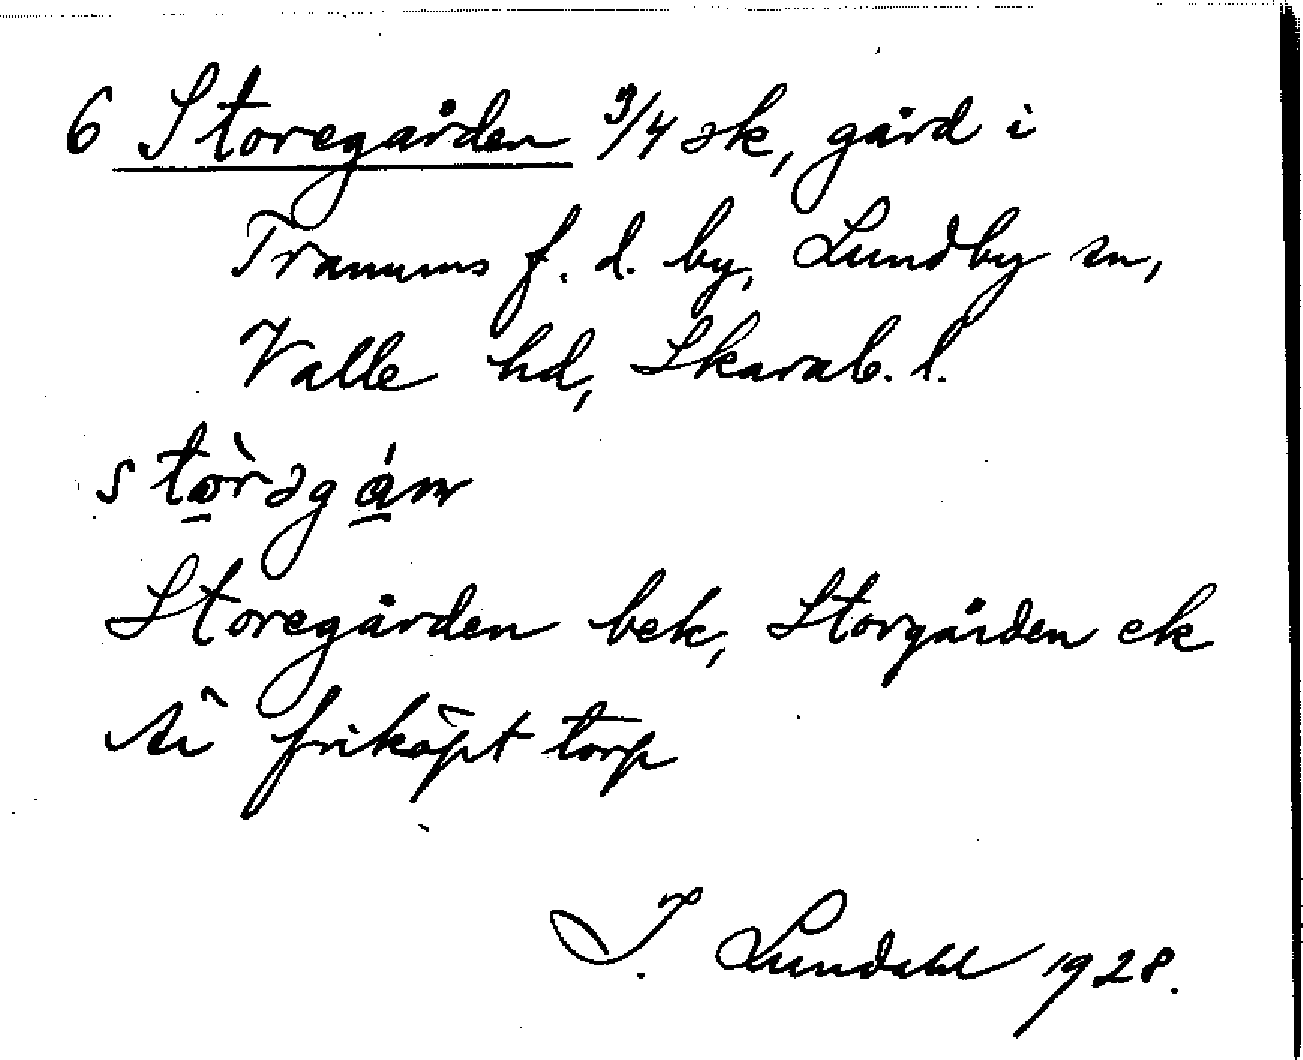 6 Storegården 3/4 sk, gård i
Tranums f. d. by, Lundby sn,
Valle hd, Skarab. l.
stò̱rəgá̱nr
Storegården bek, Storgården ek
Äi friköpt torp
I. Lundahl 1928.